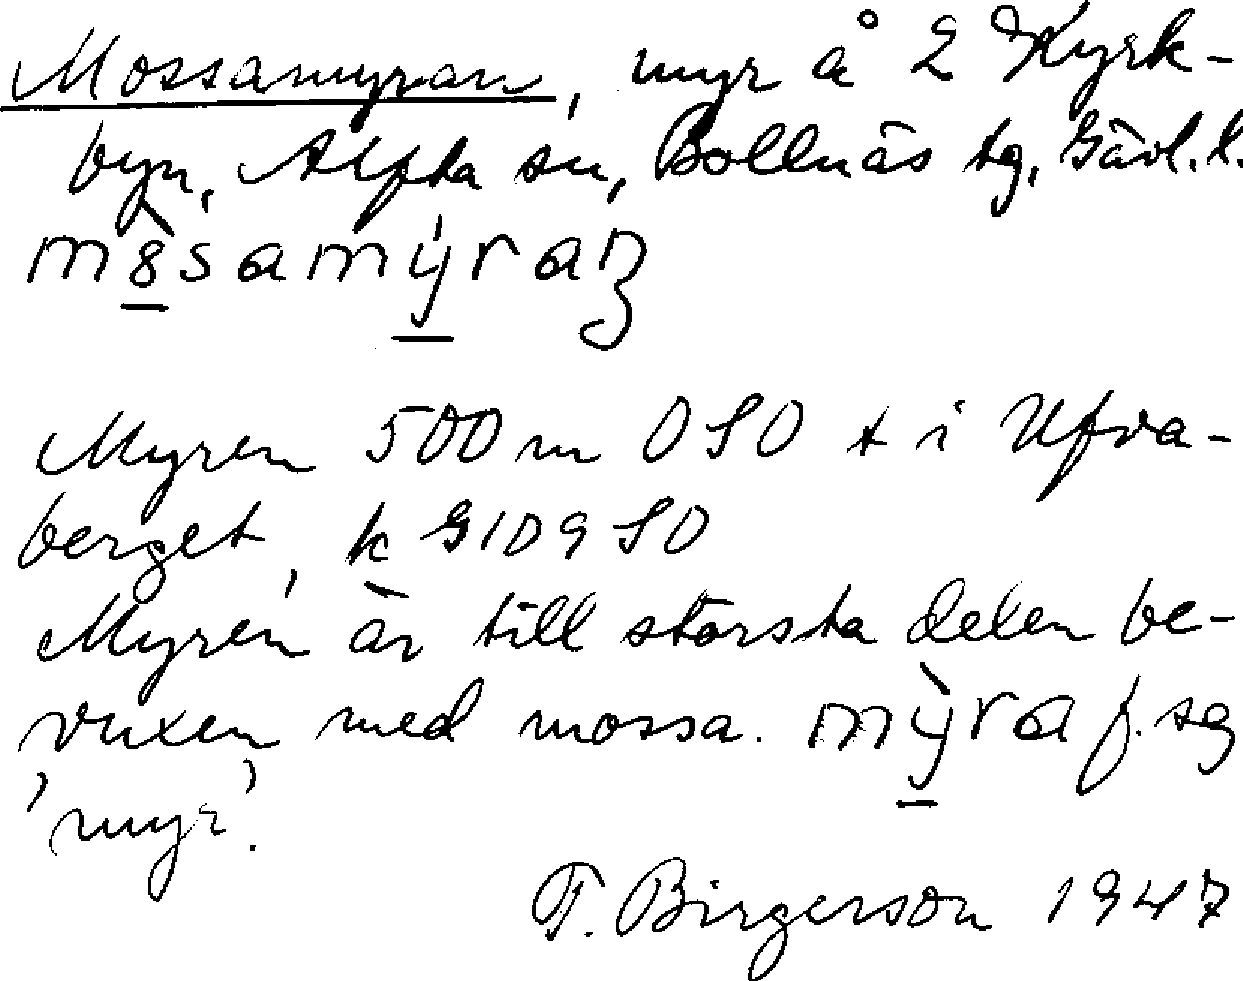 Mossamyran, myr å 2 Kyrk-
byn, Alfta sn, Bollnäs tg, Gävl. l.
Myren 500 m OSO t i Ufva-
berget, k G109 SO
Myren är till största delen be-
vuxen med mossa. mỳ̠ra f. sg
'myr'.
T. Birgerson 1947